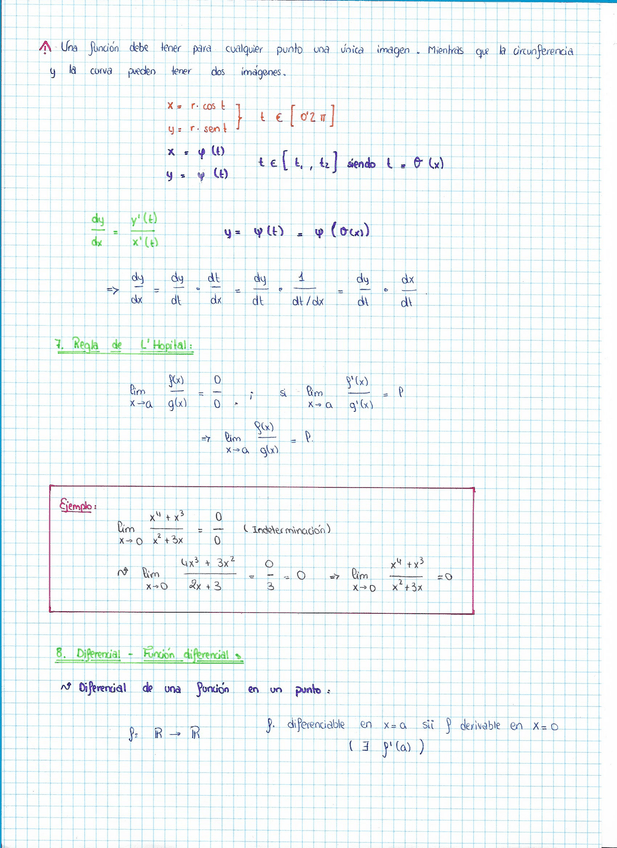 ⚠ Una función debe tener para cualquier punto una única imagen. Mientras que la circunferencia
y la curva pueden tener dos imágenes.
x = r · cos t
y = r · sen t } t ∈ [0'2π]
x = φ(t)
y = ψ(t) t ∈ [t₁, t₂] siendo t = σ(x)
dy/dx = y'(t)/x'(t) y = φ(t) = φ(σ(x))
=> dy/dx = dy/dt · dt/dx = dy/dt · 1/(dt/dx) = dy/dt · dx/dt
7. Regla de L'Hopital:
lim x→a f(x)/g(x) = 0/0 . ; si lim x→a f'(x)/g'(x) = l
=> lim x→a f(x)/g(x) = l.
Ejemplo:
lim x→0 (x⁴ + x³)/(x² + 3x) = 0/0 (Indeterminación)
lim x→0 (4x³ + 3x²)/(2x + 3) = 0/3 = 0 => lim x→0 (x⁴ + x³)/(x² + 3x) = 0
8. Diferencial - Función diferencial:
Diferencial de una función en un punto:
f: ℝ → ℝ f. diferenciable en x=a sii f derivable en x=0
(∃ f'(a))